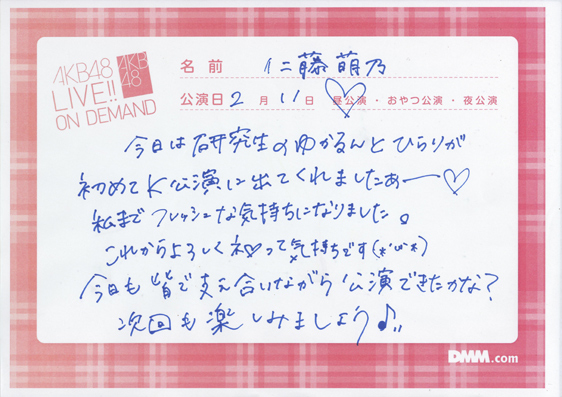 AKB48
LIVE!!
ON DEMAND
AKB
48
名前 仁藤萌乃
公演日 2月11日 昼公演・おやつ公演・夜公演
今日は研究生のゆかるんとひらりが
初めてK公演に出てくれましたぁー♡
私までフレッシュな気持ちになりました。
これからよろしくネ♡って気持ちです(*'ω'*)
今日も皆で支え合いながら公演できたかな?
次回も楽しみましょう♪!!
DMM.com